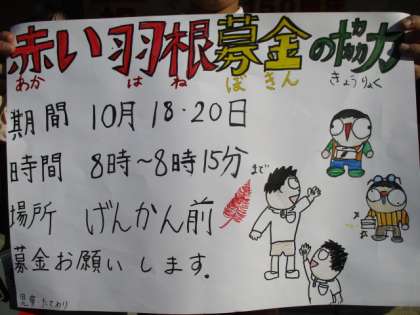 赤い羽根募金の協力
あか はね ぼきん きょうりょく
期間 10月 18・20日
時間 8時〜8時15分まで
場所 げんかん前
募金お願いします。
児童